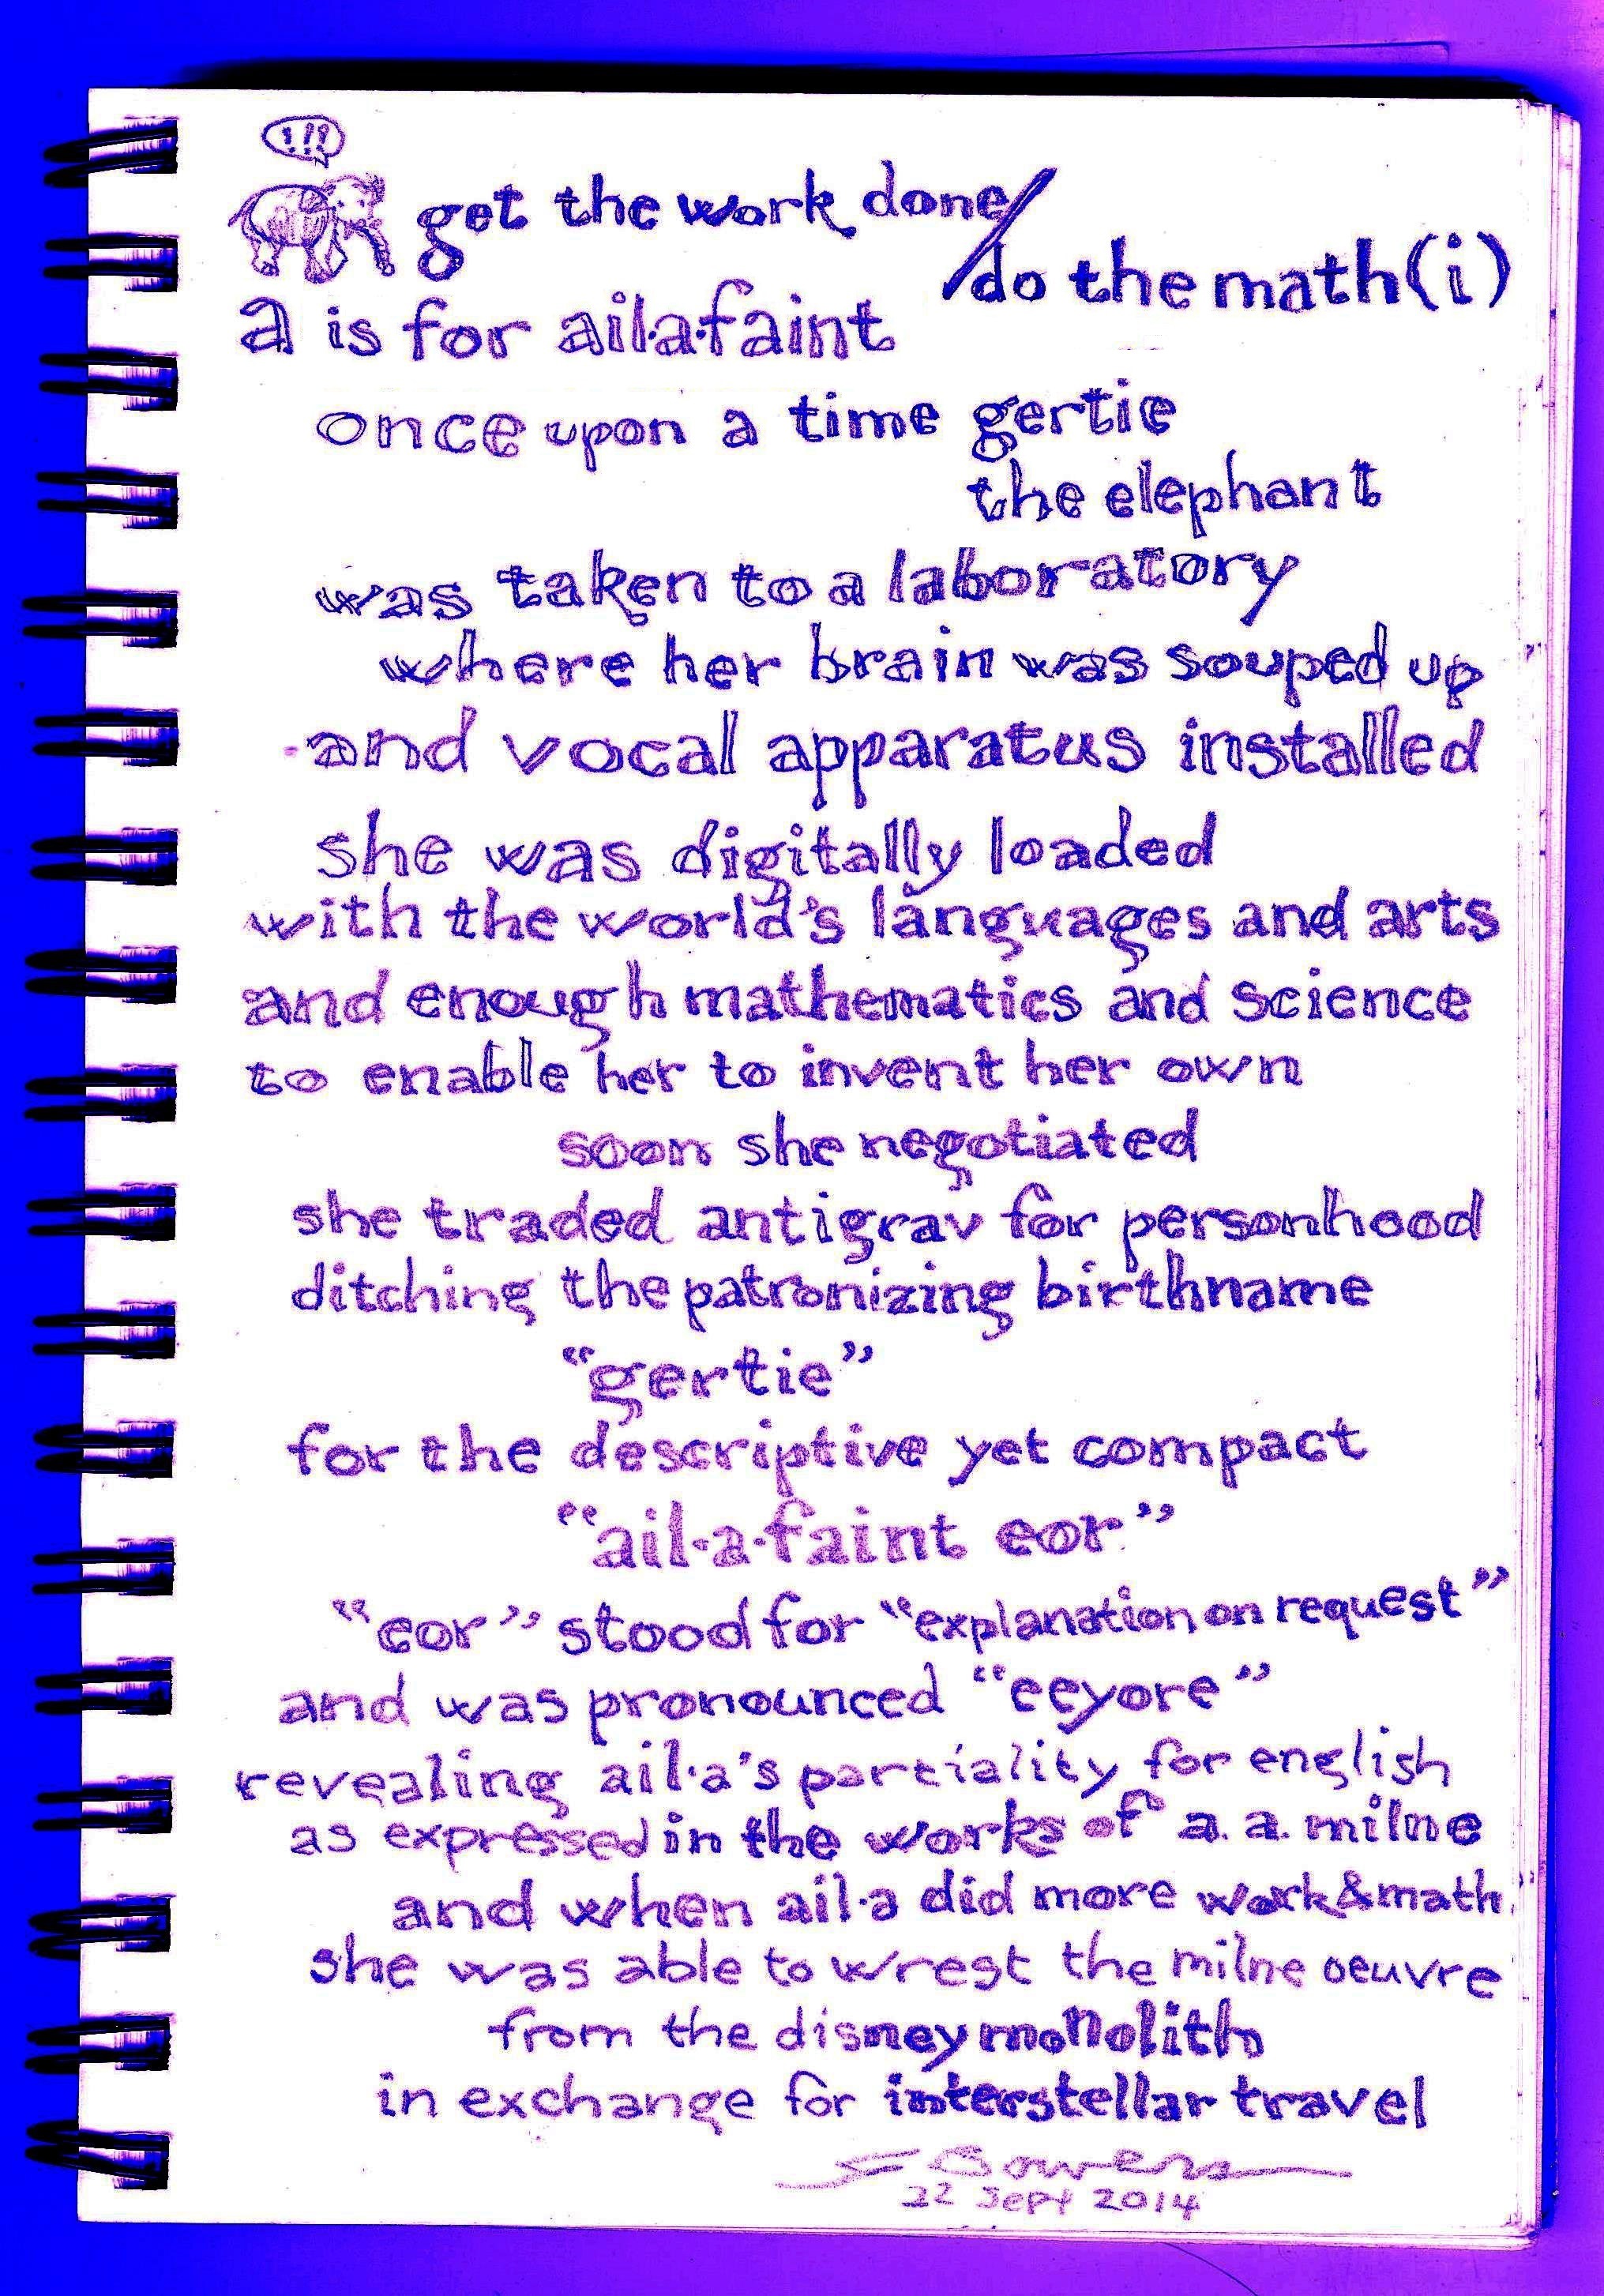 !!!
get the work done/
do the math(i)
a is for ail·a·faint
once upon a time gertie
the elephant
was taken to a laboratory
where her brain was souped up
and vocal apparatus installed
she was digitally loaded
with the world's languages and arts
and enough mathematics and science
to enable her to invent her own
soon she negotiated
she traded antigrav for personhood
ditching the patronizing birthname
"gertie"
for the descriptive yet compact
"ail·a·faint eor"
"eor" stood for "explanation on request"
and was pronounced "eeyore"
revealing ail·a's partiality for english
as expressed in the works of a. a. milne
and when ail·a did more work&math
she was able to wrest the milne oeuvre
from the disney monolith
in exchange for interstellar travel
22 Sept 2014